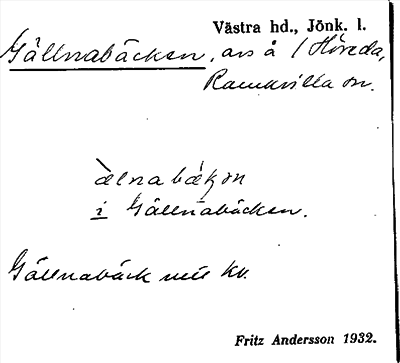 Västra hd., Jönk. l.
Gällnabäcken, ars å / Höreda,
Ramkvilla sn.
àelnabækon
i Gällnabäcken.
Gällnabäck kv.
Fritz Andersson 1932.